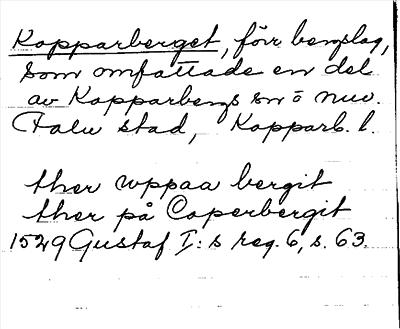 Kopparberget, förr bergslag,
som omfattade en del
av Kopparbergs sn o nuv.
Falu stad, Kopparb. l.
ther vppaa bergit
ther på Coperbergit
1529 Gustaf I:s reg. 6, s. 63.